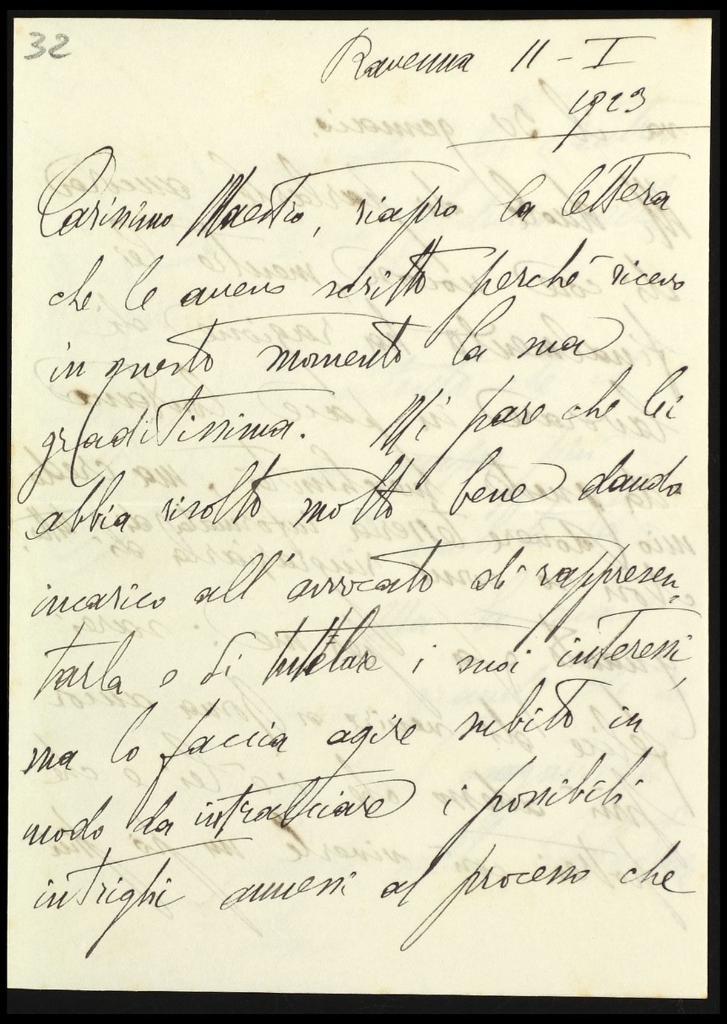 32
Ravenna 11 - I
1923
Carissimo Maestro, riapro la lettera
che le avevo scritto perché ricevo
in questo momento la sua
graditissima. Mi pare che lei
abbia risolto molto bene dando
incarico all'avvocato di rappresen-
tarla e di tutelare i suoi interessi,
ma lo faccia agire subito in
modo da intralciare i possibili
intrighi annessi al processo che